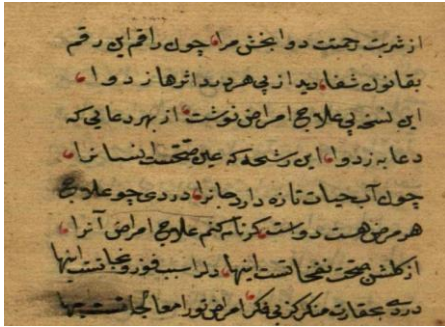 از شربت رحمتت دوا بخش مرا چون راقم این رقم
بقانون شفا دید از پی هر درد اثرها ز دوا
این نسخه پی علاج امراض نوشت از بهر دعایی که
دعا به ز دوا این رشحه که عین صحتست انسانرا
چون آب حیات تازه دارد جانرا دردی چو علاج
هر مرض هست درو است کرنامه کنم علاج امراض آنرا
از گلشن صحت نفحاتست اینها دلرا سبب فور و نجاتست اینها
در وی بحقارت منکر کز پی فکر امراض ترا معالجاتست اینها